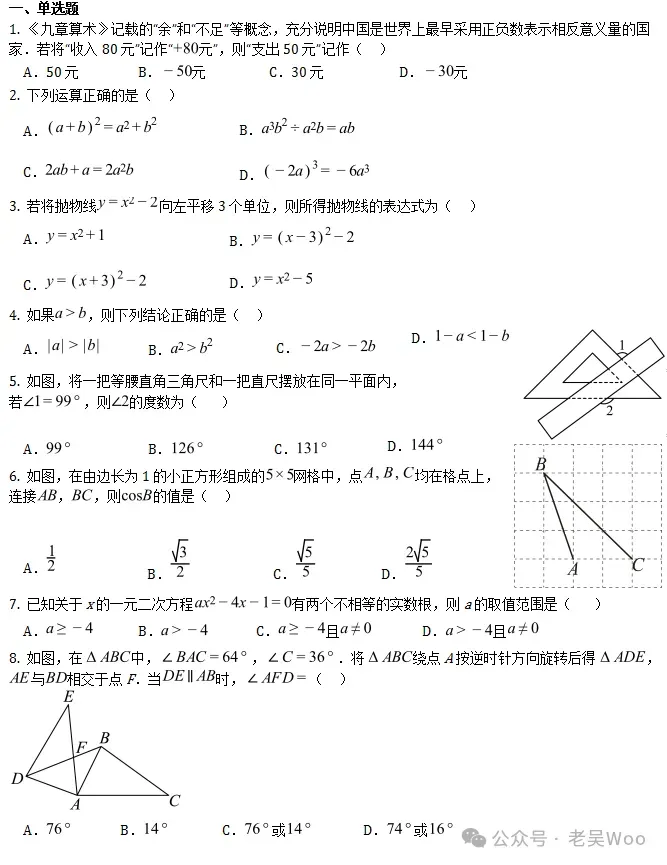 一、单选题
1. 《九章算术》记载的“余”和“不足”等概念，充分说明中国是世界上最早采用正负数表示相反意义量的国
家．若将“收入 80 元”记作“+80元”，则“支出 50 元”记作（　）
A．50 元　B．－50元　C．30 元　D．－30元
2. 下列运算正确的是（　）
A．(a+b)²=a²+b²　B．a³b²÷a²b=ab
C．2ab+a=2a²b　D．(－2a)³=－6a³
3. 若将抛物线y=x²－2向左平移 3 个单位，则所得抛物线的表达式为（　）
A．y=x²+1　B．y=(x－3)²－2
C．y=(x+3)²－2　D．y=x²－5
4. 如果a>b，则下列结论正确的是（　）
A．|a|>|b|　B．a²>b²　C．－2a>－2b　D．1－a<1－b
5. 如图，将一把等腰直角三角尺和一把直尺摆放在同一平面内，
若∠1=99°，则∠2的度数为（　）
1
2
A．99°　B．126°　C．131°　D．144°
6. 如图，在由边长为 1 的小正方形组成的5×5网格中，点A，B，C均在格点上，
连接AB，BC，则cosB的值是（　）
B
A　C
A．1/2　B．√3/2　C．√5/5　D．2√5/5
7. 已知关于 x 的一元二次方程ax²－4x－1=0有两个不相等的实数根，则 a 的取值范围是（　）
A．a≥－4　B．a>－4　C．a≥－4且a≠0　D．a>－4且a≠0
8. 如图，在△ABC中，∠BAC=64°，∠C=36°．将△ABC绕点 A 按逆时针方向旋转后得△ADE，
AE与BD相交于点 F．当DE∥AB时，∠AFD=（　）
E
F　B
D
A　C
A．76°　B．14°　C．76°或14°　D．74°或16°
公众号 · 老吴Woo